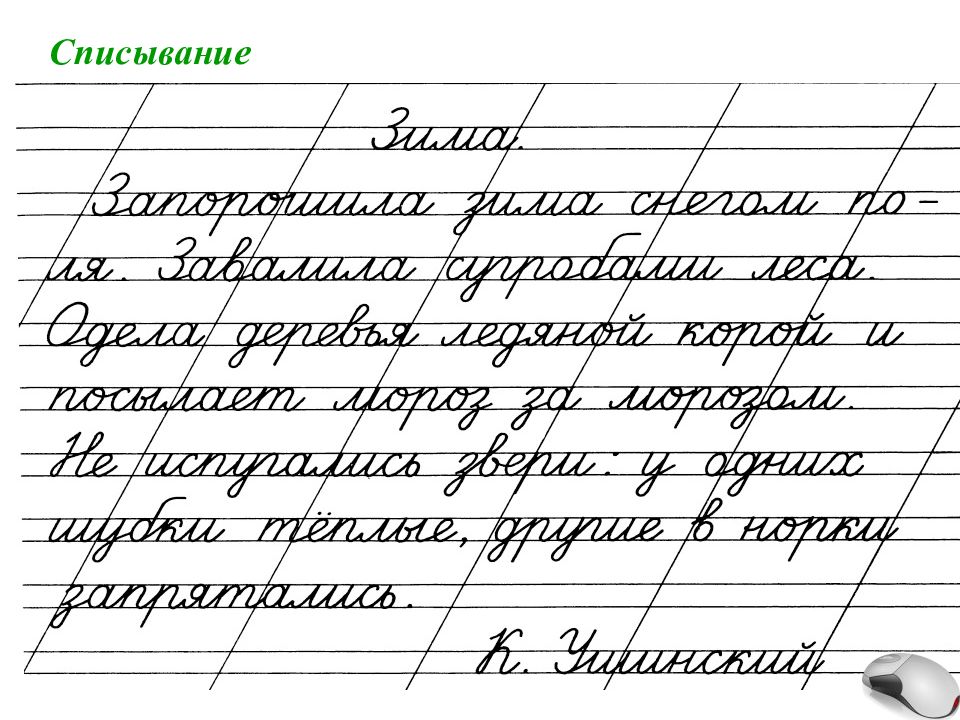 Списывание
Зима.
Запорошила зима снегом по-
ля. Завалила сугробами леса.
Одела деревья ледяной корой и
посылает мороз за морозом.
Не испугались звери: у одних
шубки тёплые, другие в норки
запрятались.
К. Ушинский